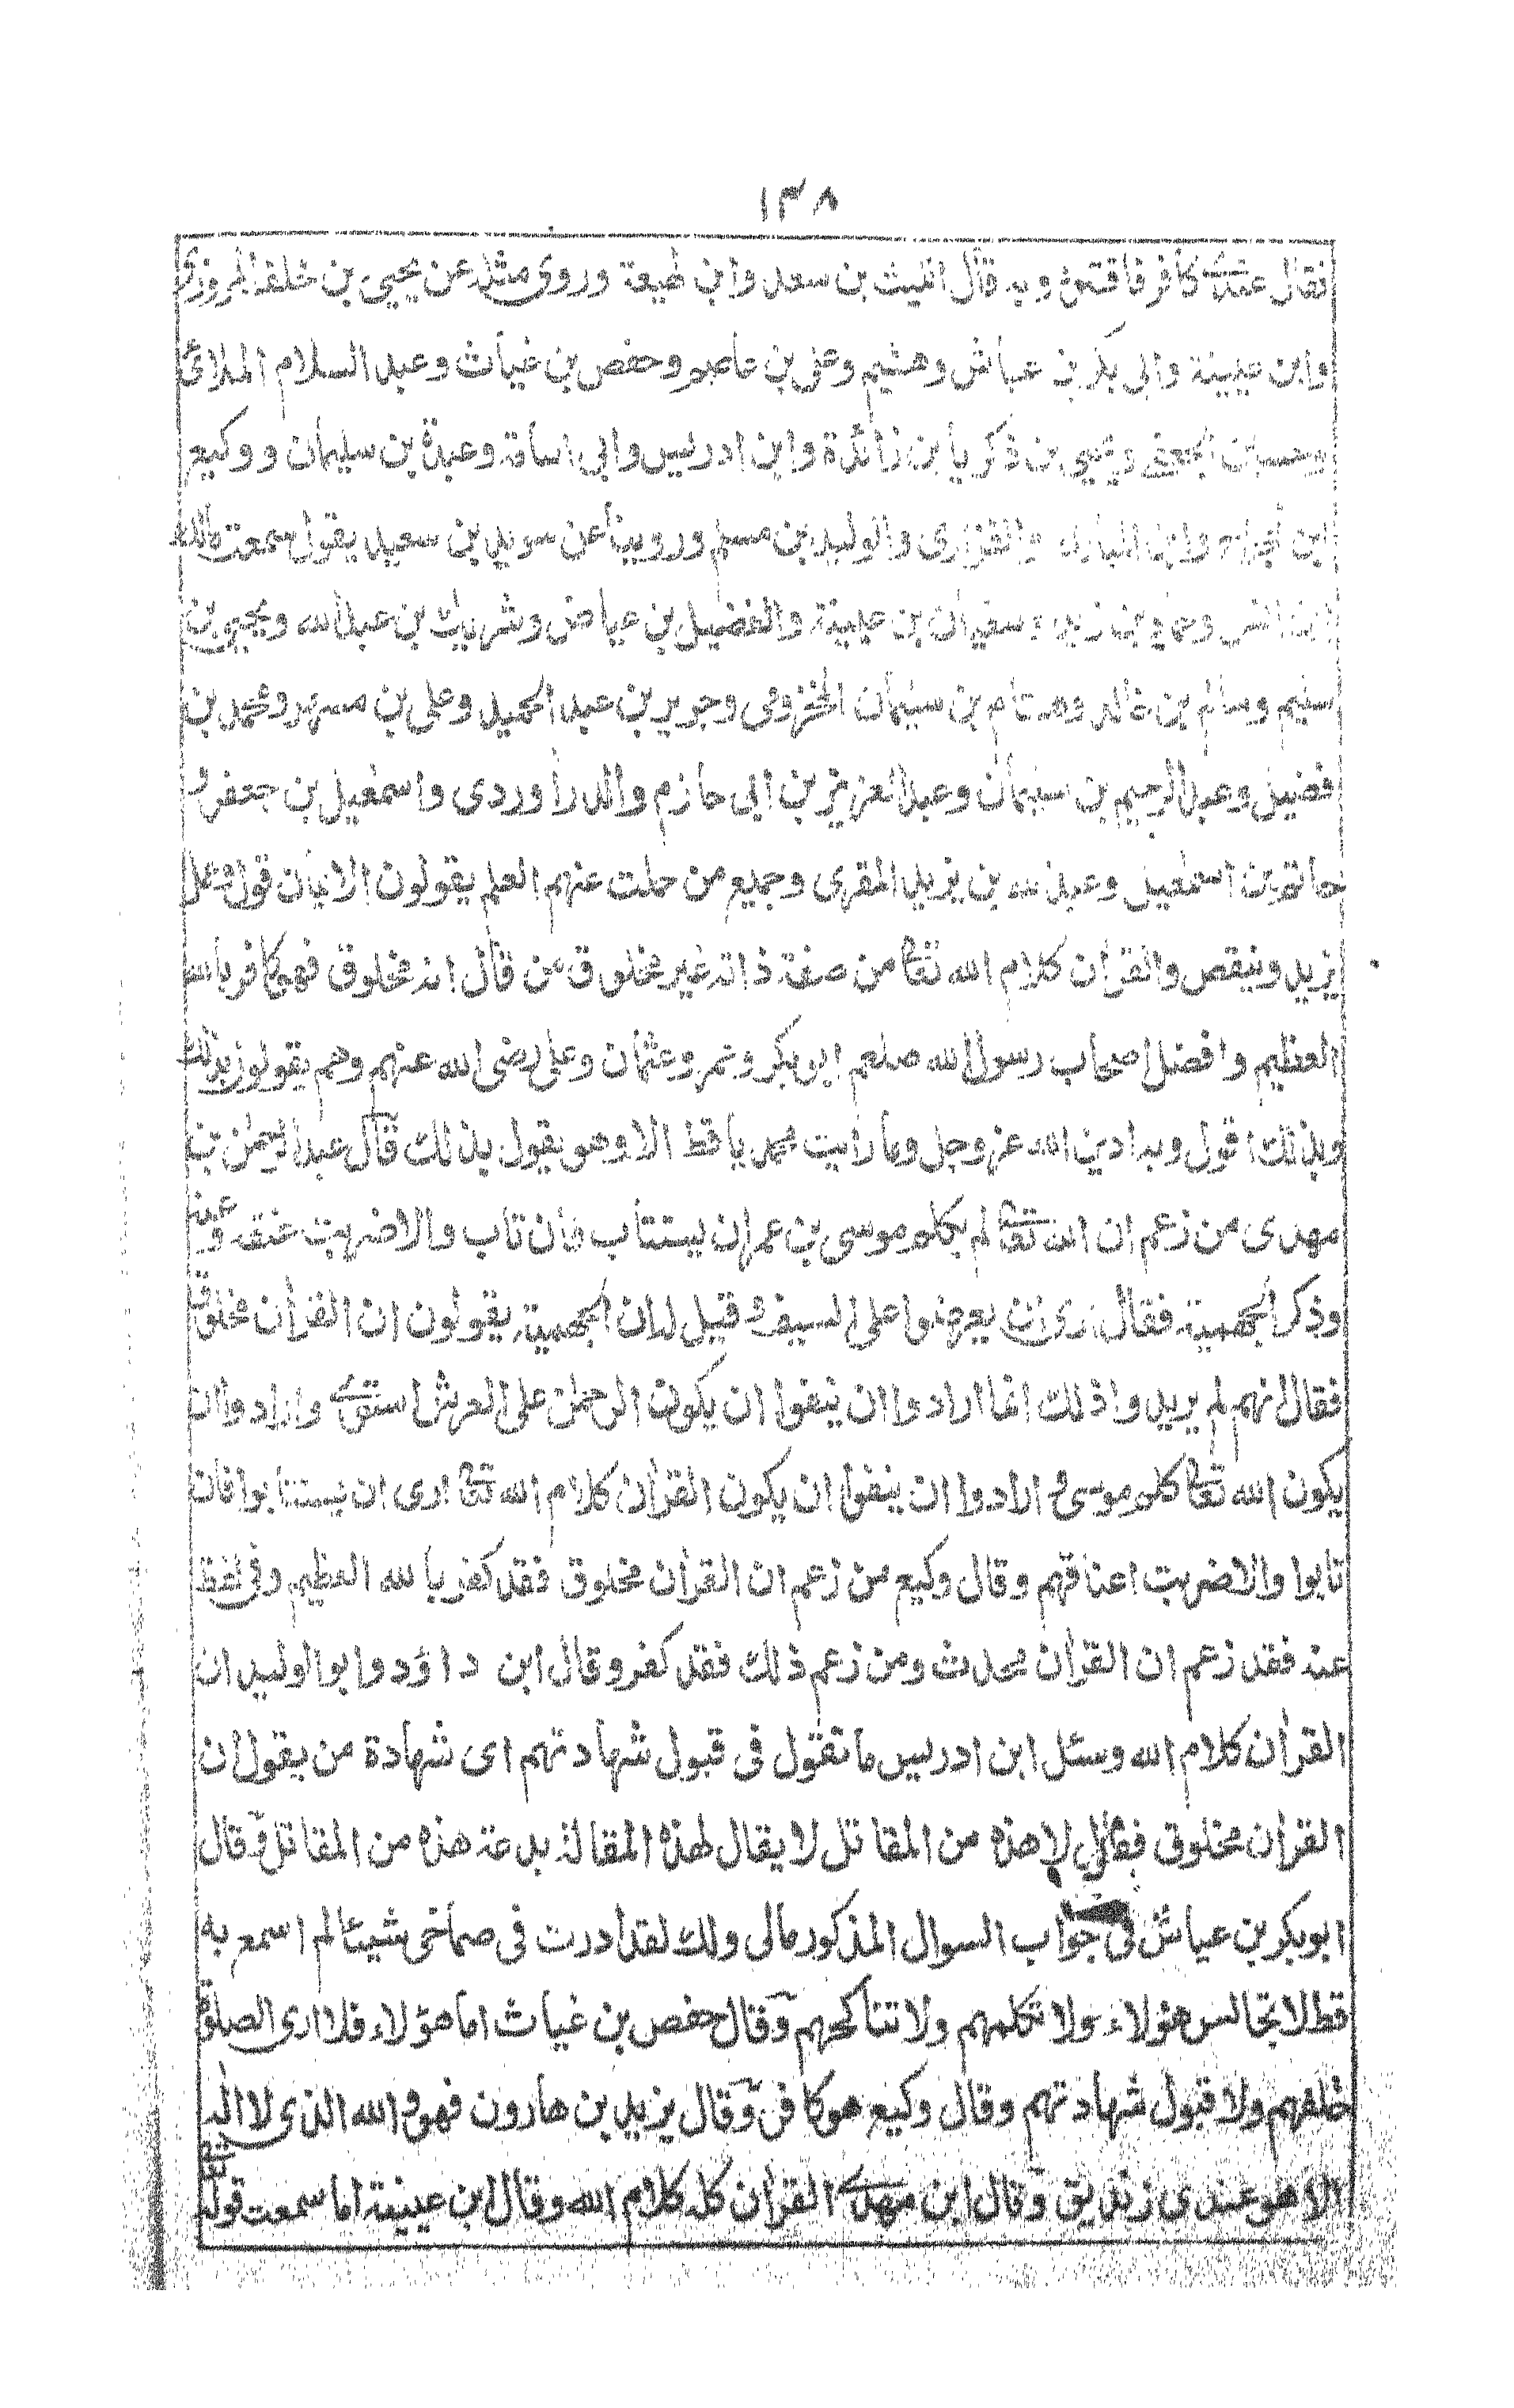 ١٣٨
فقال عندى كافر فاقتلوه وبه قال الليث بن سعد وابن لهيعة وروى مثله عن يحيى بن خلف المروزى
وابن عيينة وابى بكر بن عياش وهشيم وعلى بن عاصم وحفص بن غياث وعبد السلام الملائى
وحسين الجعفى ويحيى بن زكريا بن زائدة وابن ادريس وابى اسامة وعبدة بن سليمان ووكيع
ابن الجراح وابن المبارك والفزارى والوليد بن مسلم وروينا عن سويد بن سعيد يقول سمعت مالك
ابن انس وحماد بن زيد وسفيان بن عيينة والفضيل بن عياض وشريك بن عبد الله ويحيى بن
سليم ومسلم بن خالد وهشام بن سليمان المخزومى وجرير بن عبد الحميد وعلى بن مسهر ومحمد بن
فضيل وعبد الرحيم بن سليمان وعبد العزيز بن ابى حازم والدراوردى واسمعيل بن جعفر و
حاتم بن اسمعيل وعبد الله بن يزيد المقرى وجميع من حملت عنهم العلم يقولون الايمان قول وعمل
يزيد وينقص والقرأن كلام الله تعالى من صفة ذاته غير مخلوق من قال انه مخلوق فهو كافر بالله
العظيم وافضل اصحاب رسول الله صلعم ابو بكر وعمر وعثمان وعلى رضى الله عنهم وهم يقولون بذلك
وبذلك اقول وبه ادين الله عز وجل وما رأيت محمديا قط الا وهو يقول بذلك قال عبد الرحمن بن
مهدى من زعم ان الله تعالى لم يكلم موسى بن عمران يستتاب فان تاب والا ضربت عنقه وعنه
وذكر الجهمية فقال ارى ان يعرضوا على السيف وقيل له ان الجهمية يقولون ان القرأن مخلوق
فقال انهم لم يريدوا ذلك انما ارادوا ان ينفوا ان يكون الرحمن على العرش استوى وارادوا ان
يكون الله تعالى كلم موسى و ارادوا ان ينفوا ان يكون القرأن كلام الله تعالى ارى ان يستتابوا فان
تابوا والا ضربت اعناقهم وقال وكيع من زعم ان القرأن مخلوق فقد كفر بالله العظيم وفى لفظ
عنه فقد زعم ان القرأن محدث ومن زعم ذلك فقد كفر وقال ابن داؤد وابو الوليد ان
القرأن كلام الله وسئل ابن ادريس ما تقول فى قبول شهادتهم اى شهادة من يقول ان
القرأن مخلوق فقال لا هذه من المقاتل لا يقال لهذه المقالة بدعة هذه من المقاتل وقال
ابو بكر بن عياش فى جواب السوال المذكور مالى ولك لقد ادرت فى صماخى شيئا لم اسمع به
قط لا تجالس هؤلاء ولا تكلمهم ولا تناكحهم وقال حفص بن غياث اما هؤلاء فلا ارى الصلوة
خلفهم ولا قبول شهادتهم وقال وكيع هو كافر وقال يزيد بن هارون فهو والله الذى لا اله
الا هو عندى زنديق وقال ابن مهدى القرأن كله كلام الله وقال ابن عيينة اما سمعت قوله